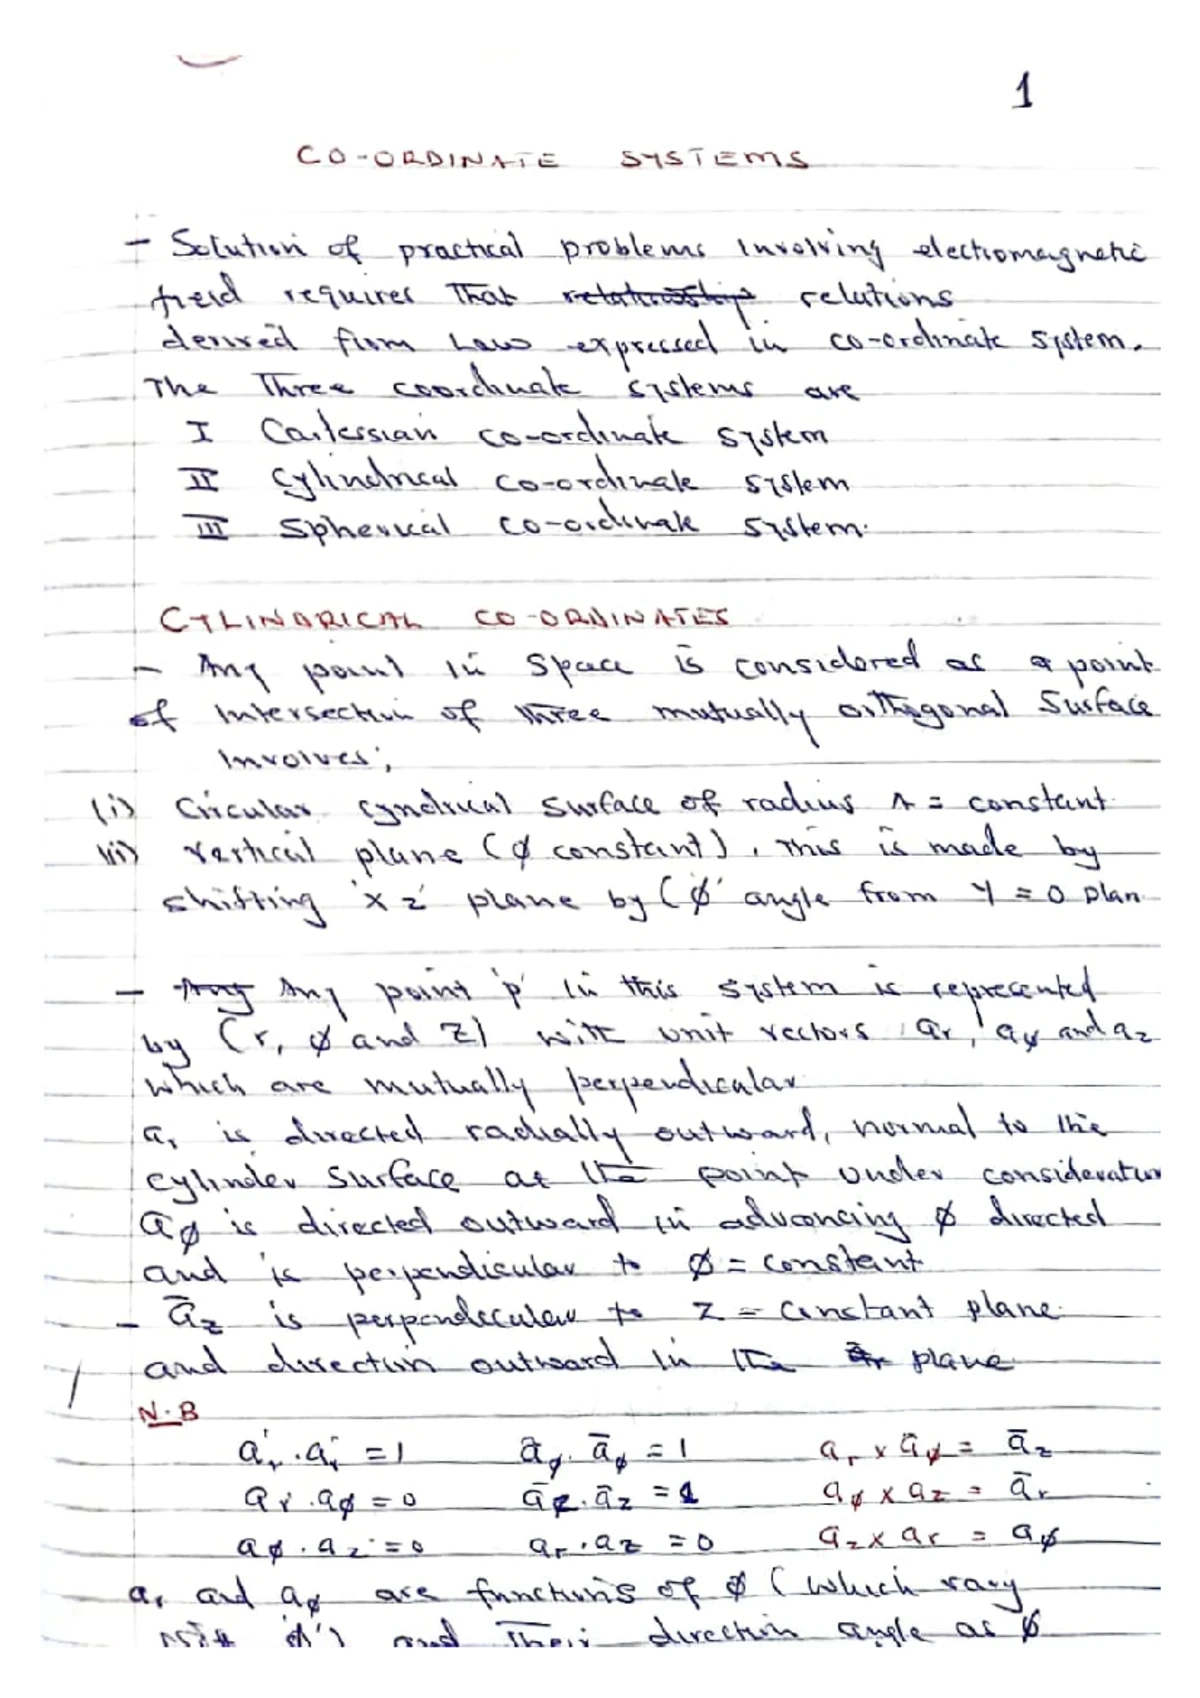 1
CO-ORDINATE SYSTEMS
- Solution of practical problems involving electromagnetic
field requires that relationships relations
derived from Law expressed in co-ordinate system.
The Three coordinate systems are
I Cartessian co-ordinate system
II Cylindrical co-ordinate system
III Spherical co-ordinate system.
CYLINDRICAL CO-ORDINATES
- Any point in space is considered as a point
of intersection of three mutually orthogonal surface
involves;
(i) Circular cyndrical surface of radius r = constant
(ii) vertical plane (ø constant), This is made by
shifting 'xz' plane by (ø' angle from y = 0 plan
- Any Any point 'p' in this system is represented
by (r, ø and z) with unit vectors ar, aø and az
which are mutually perpendicular
ar is directed radially outward, normal to the
cylinder surface at the point under consideration
āø is directed outward in advancing ø directed
and is perpendicular to ø = constant
- āz is perpendecular to z = constant plane
and direction outward in the plane
N.B
ar . ar = 1 āø . āø = 1 ar x āø = āz
ar . aø = 0 āz . āz = 1 aø x az = ār
aø . az = 0 ar . az = 0 az x ar = aø
ar and aø are functions of ø (which vary
with 'ø') and their direction angle as ø